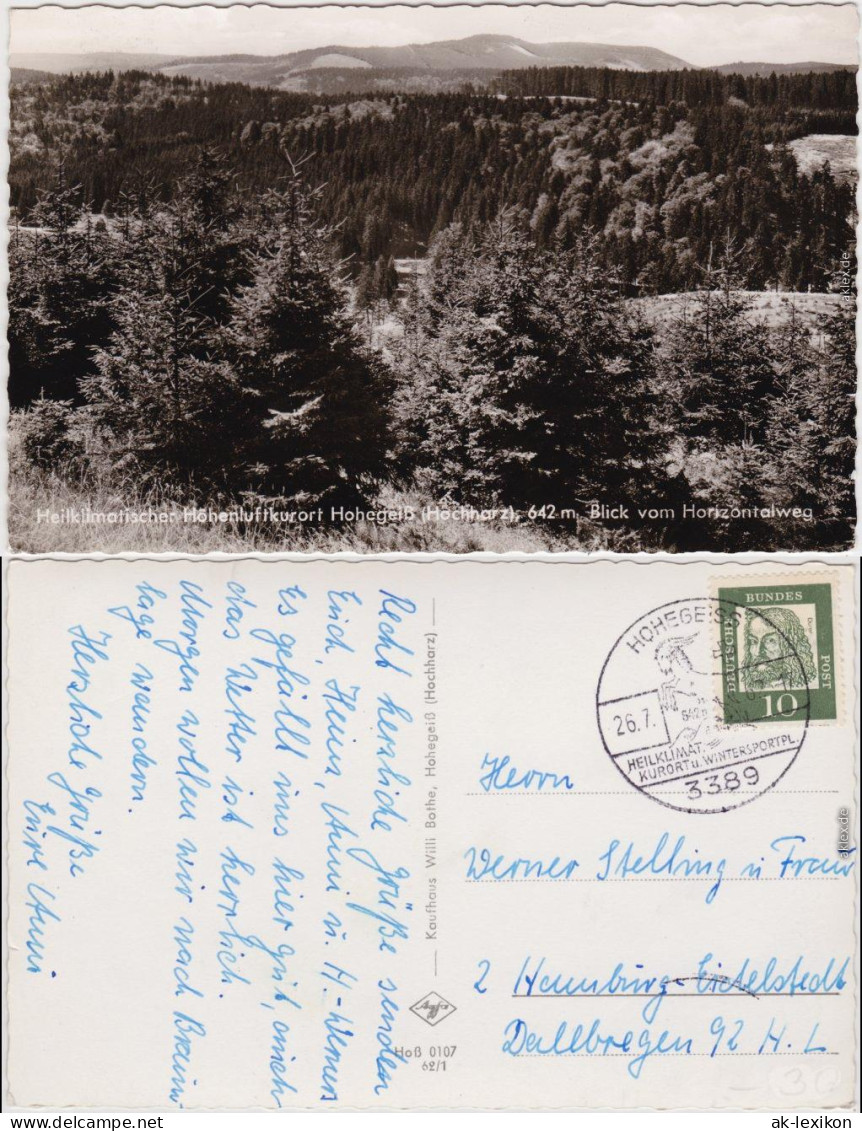 Heilklimatischer Höhenluftkurort Hohegeiß (Hochharz), 642 m, Blick vom Horizontalweg
Recht herzliche Grüße senden
Euch, Heinz, Anni u. H.-Werner
Es gefällt uns hier gut, auch
das Wetter ist herrlich.
Morgen wollen wir nach Braun-
lage wandern.
Herzliche Grüße
Eure Anni
Kaufhaus Willi Bothe, Hohegeiß (Hochharz)
Agfa
HoB 0107
62/1
DEUTSCHE
BUNDES
POST
10
HOHEGEISS
26.7.
HEILKLIMAT.
KURORT u. WINTERSPORTPL.
3389
Herrn
Werner Stelling u Frau
2 Hamburg-Eidelstedt
92 H. L
30
ak-lexikon.de
ak-lexikon.de
ak-lexikon